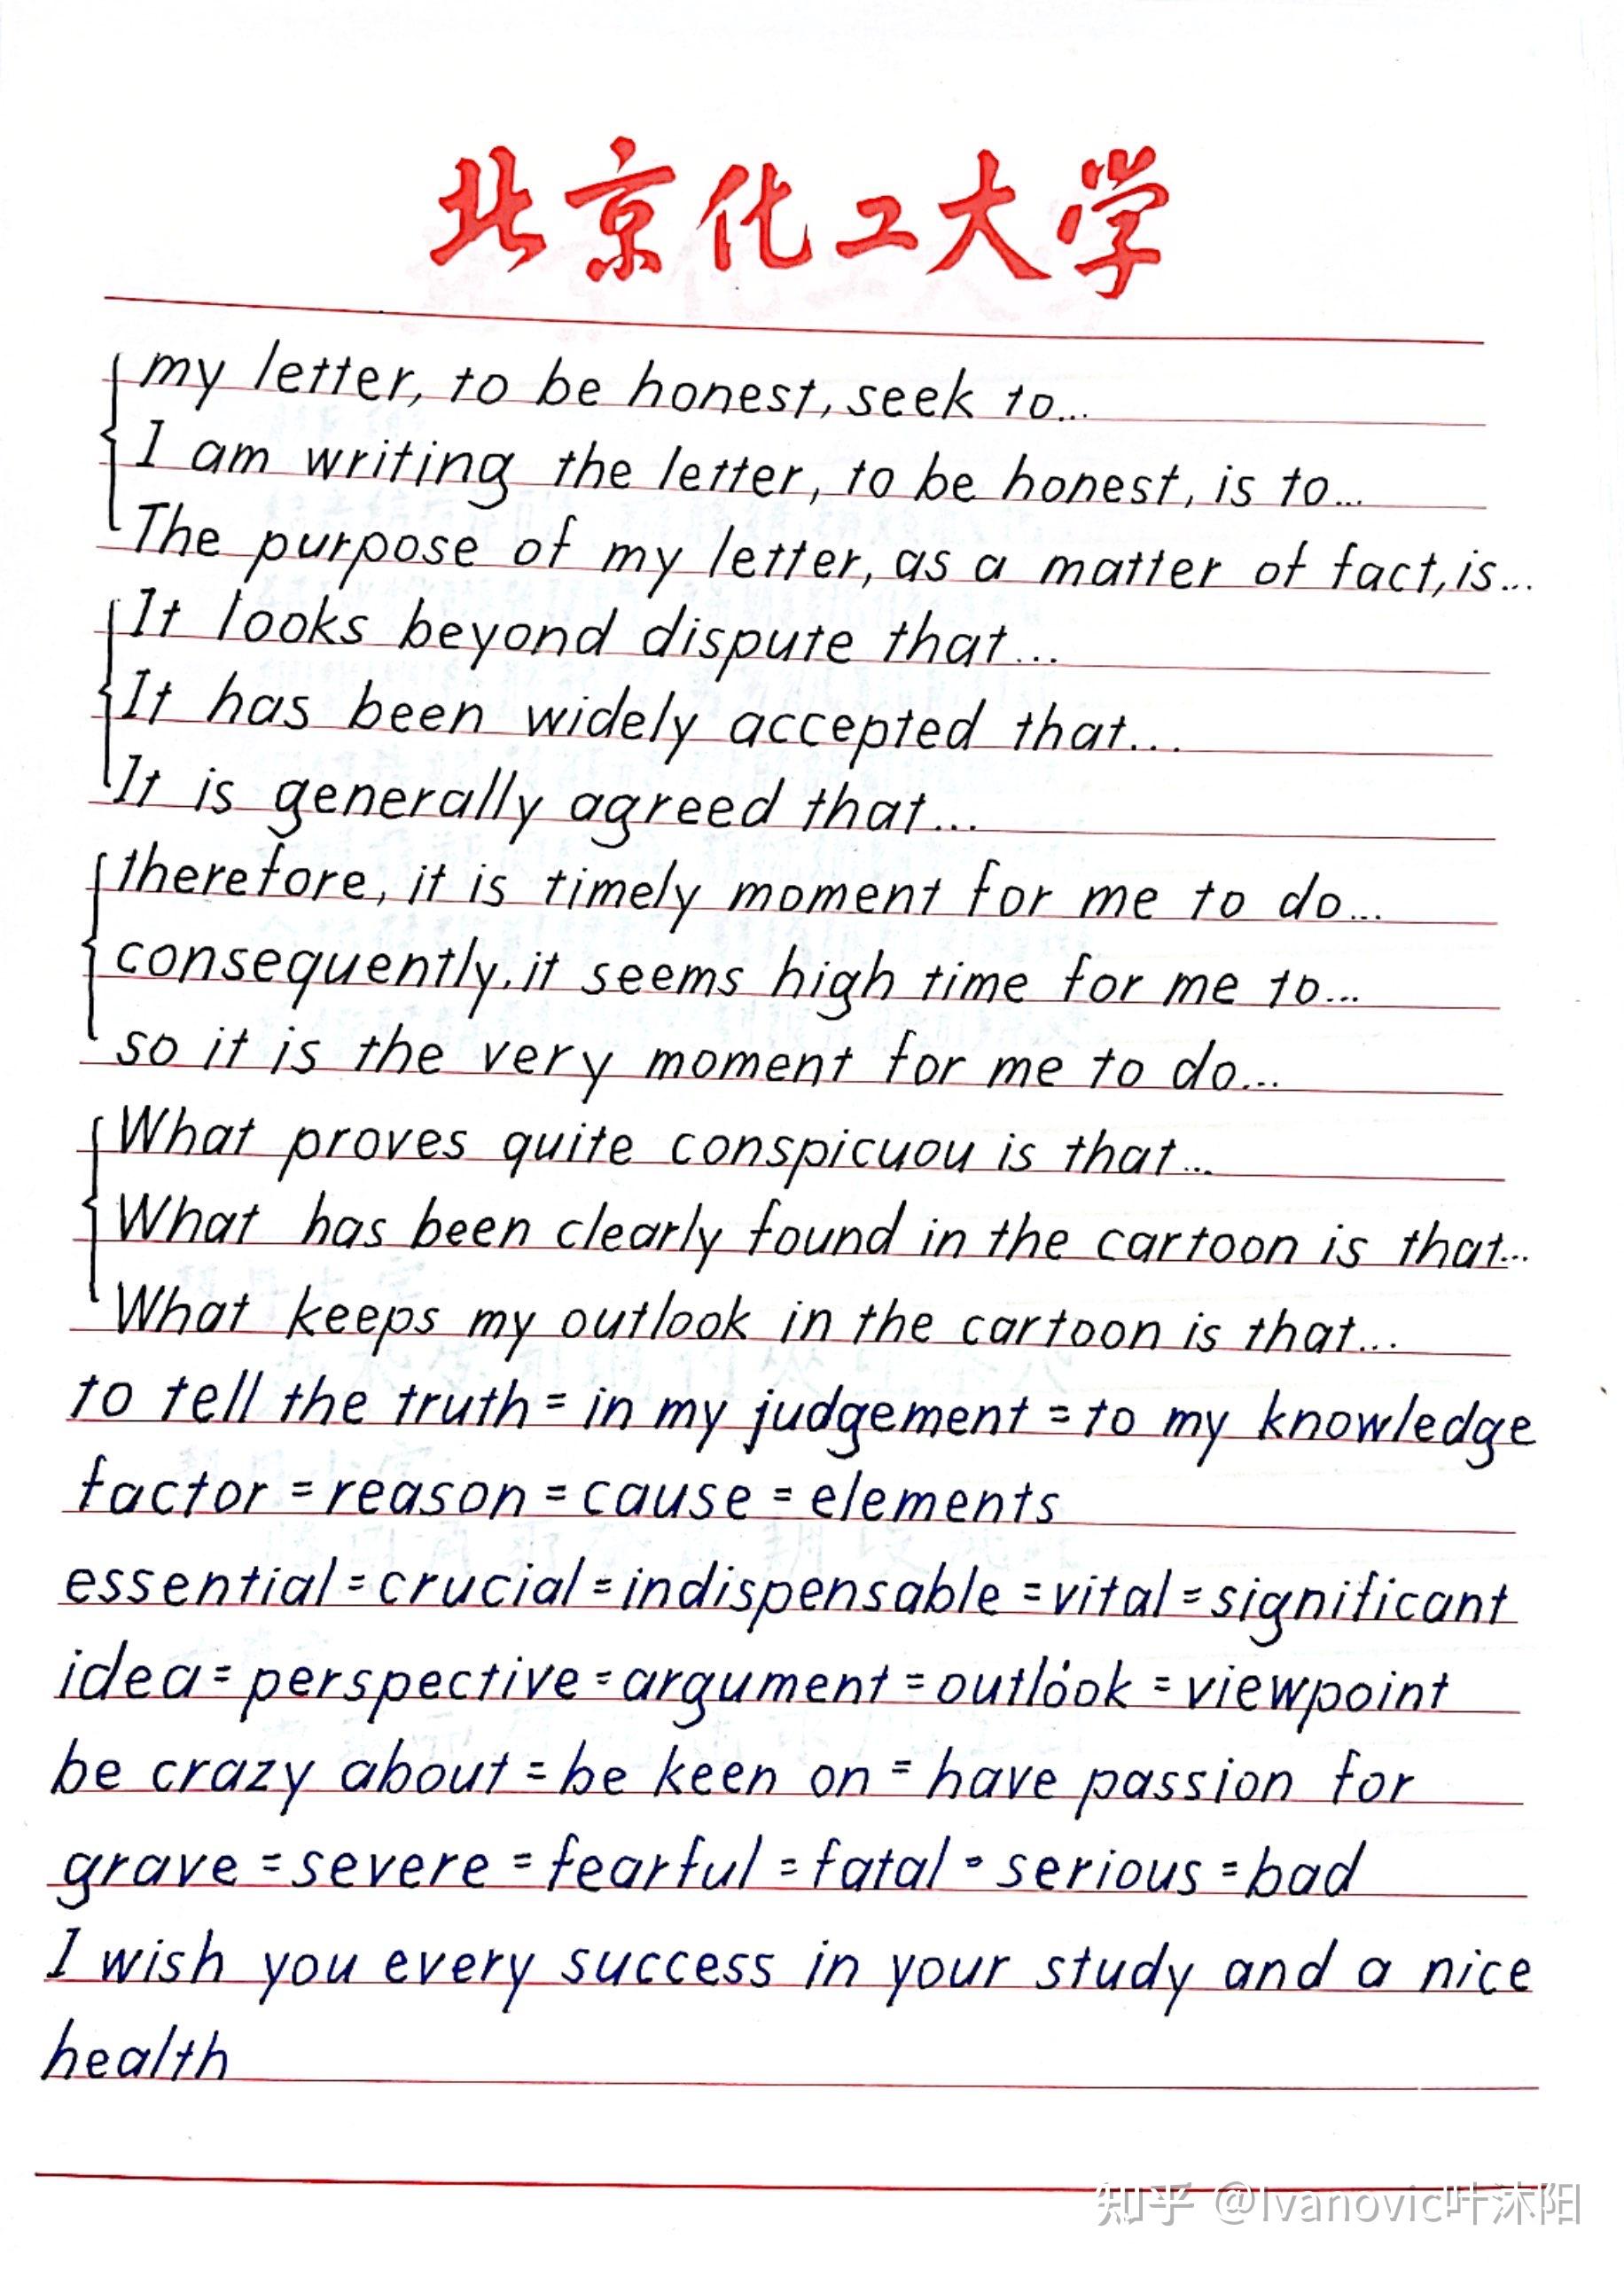 北京化工大学
my letter, to be honest, seek to...
I am writing the letter, to be honest, is to...
The purpose of my letter, as a matter of fact, is...
It looks beyond dispute that...
It has been widely accepted that...
It is generally agreed that...
therefore, it is timely moment for me to do...
consequently, it seems high time for me to...
so it is the very moment for me to do...
What proves quite conspicuou is that...
What has been clearly found in the cartoon is that...
What keeps my outlook in the cartoon is that...
to tell the truth = in my judgement = to my knowledge
factor = reason = cause = elements
essential = crucial = indispensable = vital = significant
idea = perspective = argument = outlook = viewpoint
be crazy about = be keen on = have passion for
grave = severe = fearful = fatal = serious = bad
I wish you every success in your study and a nice
health
知乎 @Ivanovic叶沐阳